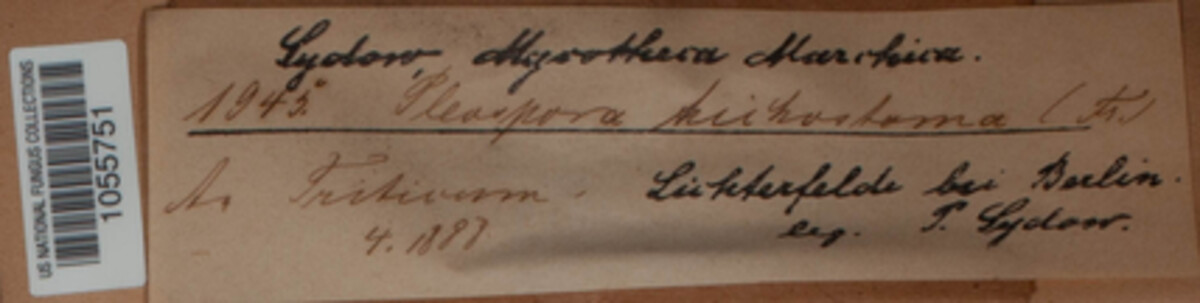 US NATIONAL FUNGUS COLLECTIONS
1055751
Sydow, Mycotheca Marchica.
1945. Pleospora trichostoma (Fr.)
A. Triticum.
4. 1887
Lichterfelde bei Berlin.
leg. P. Sydow.